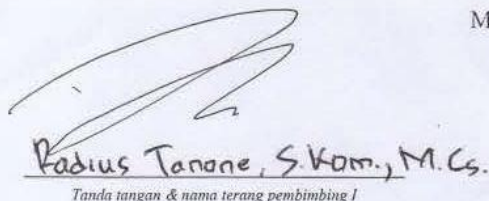 M
Radius Tanone, S.Kom., M.Cs.
Tanda tangan & nama terang pembimbing I